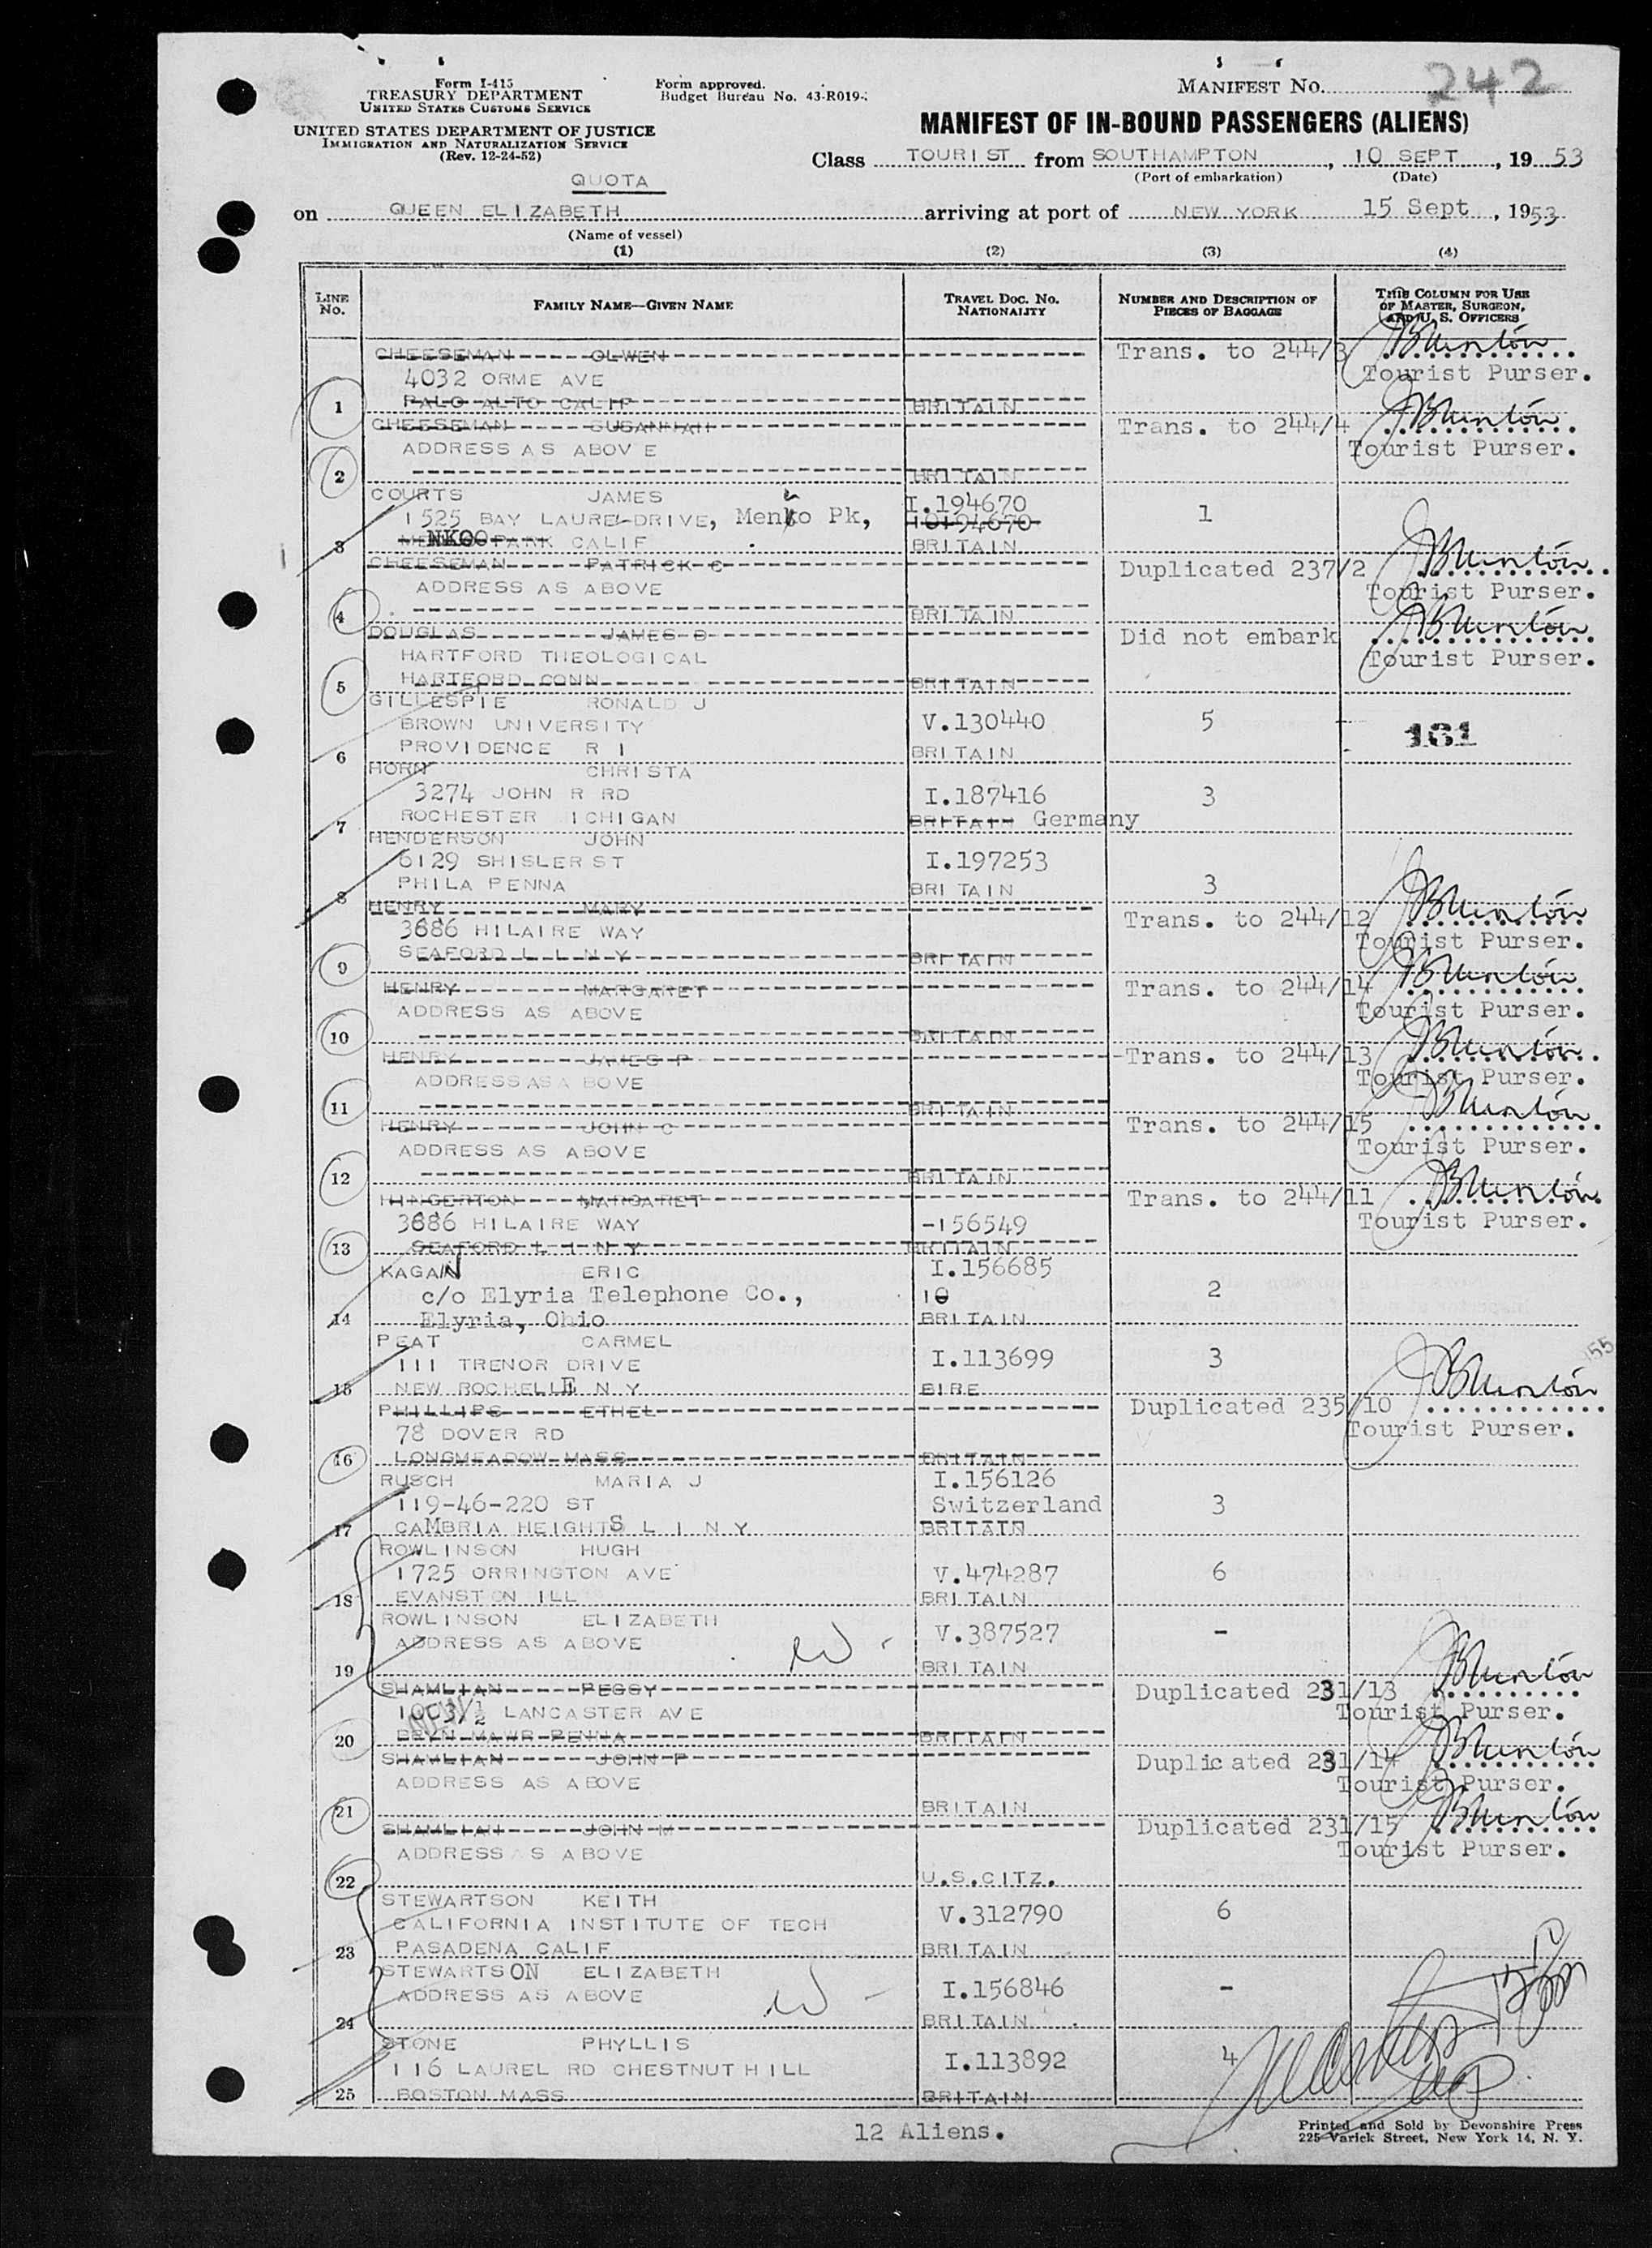 Form I-415
TREASURY DEPARTMENT
UNITED STATES CUSTOMS SERVICE
UNITED STATES DEPARTMENT OF JUSTICE
IMMIGRATION AND NATURALIZATION SERVICE
(Rev. 12-24-52)
Form approved.
Budget Bureau No. 43-R019-
MANIFEST No. 242
MANIFEST OF IN-BOUND PASSENGERS (ALIENS)
Class TOURIST from SOUTHAMPTON, 10 SEPT, 1953
(Port of embarkation) (Date)
QUOTA
on QUEEN ELIZABETH arriving at port of NEW YORK 15 Sept, 1953
(Name of vessel)
(1) (2) (3) (4)
LINE No.
FAMILY NAME—GIVEN NAME
TRAVEL DOC. NO. NATIONALITY
NUMBER AND DESCRIPTION OF PIECES OF BAGGAGE
THIS COLUMN FOR USE OF MASTER, SURGEON, AND U. S. OFFICERS
CHEESEMAN OLWEN Trans. to 244/3
4032 ORME AVE Tourist Purser.
1 PALO ALTO CALIF BRITAIN
CHEESEMAN SUSANNAH Trans. to 244/4
ADDRESS AS ABOVE Tourist Purser.
2 BRITAIN
COURTS JAMES I.194670
1525 BAY LAUREL DRIVE, Menlo Pk, 10194670 1
3 PARK CALIF BRITAIN
CHEESEMAN PATRICK C Duplicated 237/2
ADDRESS AS ABOVE Tourist Purser.
4 BRITAIN
DOUGLAS JAMES D Did not embark
HARTFORD THEOLOGICAL Tourist Purser.
5 HARTFORD CONN BRITAIN
GILLESPIE RONALD J
BROWN UNIVERSITY V.130440 5 161
6 PROVIDENCE R I BRITAIN
HORN CHRISTA
3274 JOHN R RD I.187416 3
7 ROCHESTER ICHIGAN BRITAIN Germany
HENDERSON JOHN
6129 SHISLER ST I.197253
8 PHILA PENNA BRITAIN 3
HENRY MARY Trans. to 244/12
3686 HILAIRE WAY Tourist Purser.
9 SEAFORD L I N Y BRITAIN
HENRY MARGARET Trans. to 244/14
ADDRESS AS ABOVE Tourist Purser.
10 BRITAIN
HENRY JAMES P Trans. to 244/13
ADDRESS AS A BOVE Tourist Purser.
11 BRITAIN
HENRY JOHN C Trans. to 244/15
ADDRESS AS ABOVE Tourist Purser.
12 BRITAIN
HINGERTON MARGARET Trans. to 244/11
3686 HILAIRE WAY -156549 Tourist Purser.
13 SEAFORD L I N Y BRITAIN
KAGAN ERIC I.156685
c/o Elyria Telephone Co., 10 2
14 Elyria, Ohio BRITAIN
PEAT CARMEL
111 TRENOR DRIVE I.113699 3
15 NEW ROCHELLE N Y EIRE
PHILLIPS ETHEL Duplicated 235/10
78 DOVER RD Tourist Purser.
16 LONGMEADOW MASS BRITAIN
RUSCH MARIA J I.156126
119-46-220 ST Switzerland 3
17 CAMBRIA HEIGHTS L I N Y BRITAIN
ROWLINSON HUGH
1725 ORRINGTON AVE V.474287 6
18 EVANSTON ILL BRITAIN
ROWLINSON ELIZABETH
ADDRESS AS ABOVE W - V.387527 -
19 BRITAIN
SHAMLIAN PEGGY Duplicated 231/13
LANCASTER AVE Tourist Purser.
20 BRYN MAWR PENNA BRITAIN
SHAMLIAN JOHN P Duplicated 231/14
ADDRESS AS ABOVE Tourist Purser.
21 BRITAIN
SHAMLIAN JOHN M Duplicated 231/15
ADDRESS S ABOVE Tourist Purser.
22 U.S.CITZ.
STEWARTSON KEITH
CALIFORNIA INSTITUTE OF TECH V.312790 6
23 PASADENA CALIF BRITAIN
STEWARTSON ELIZABETH
ADDRESS AS ABOVE W - I.156846 -
24 BRITAIN
STONE PHYLLIS
116 LAUREL RD CHESTNUT HILL I.113892 4
25 BOSTON MASS BRITAIN
12 Aliens.
Printed and Sold by Devonshire Press
225 Varick Street, New York 14, N. Y.